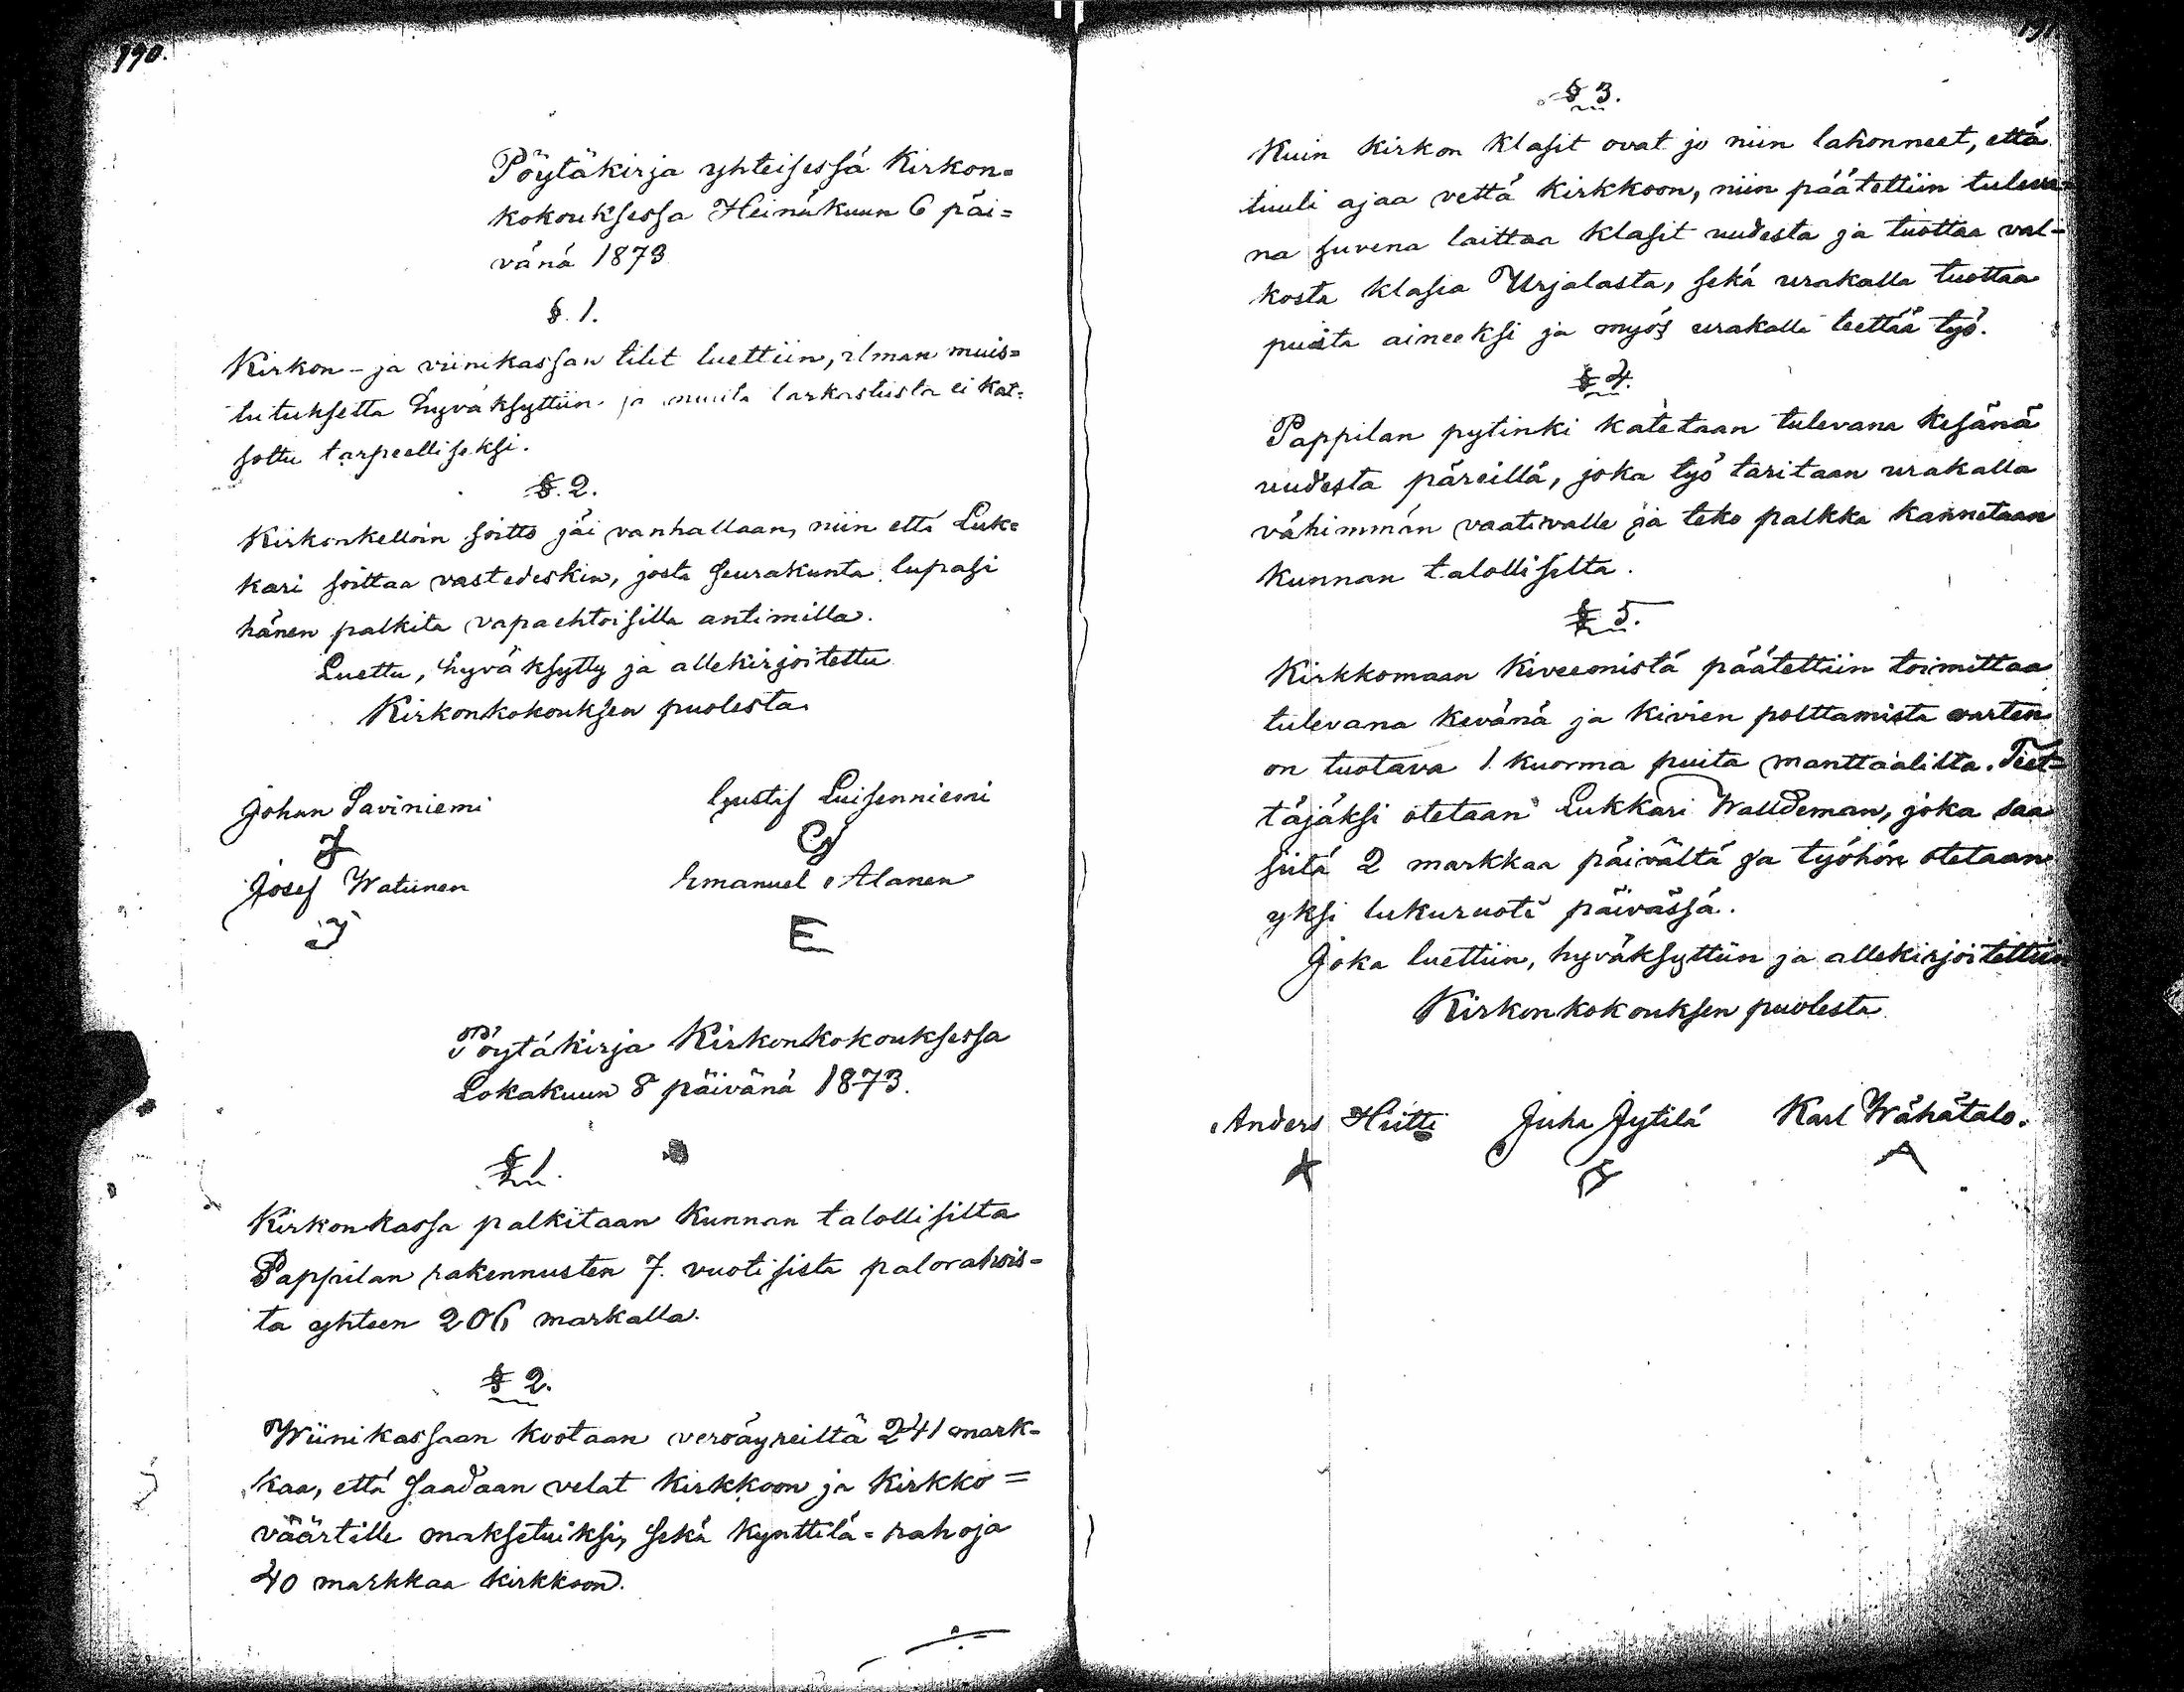 190.
Pöytäkirja yhteisessä Kirkon=
kokouksessa Heinäkuun 6 päi=
vänä 1873
§. 1.
Kirkon- ja viinikassan tilit luettiin, ilman muis=
tutuksetta hyväksyttiin ja muuta tarkastusta ei kat=
sottu tarpeelliseksi.
§. 2.
Kirkonkelloin soitto jäi vanhallaan, niin että Luk=
kari soittaa vastedeskin, josta seurakunta lupasi
hänen palkita vapaehtoisilla antimilla.
Luettu, hyväksytty ja allekirjoitettu
Kirkonkokouksen puolesta
Johan Saviniemi Gustaf Luisenniemi
Josef Watunen Emanuel Alanen
J E
Pöytäkirja Kirkonkokouksessa
Lokakuun 8 päivänä 1873.
§ 1.
Kirkonkassa palkitaan Kunnan talollisilta
Pappilan rakennusten 7. vuotisista palorahois-
ta yhteen 206 markalla.
§ 2.
Wiinikassaan kootaan veroäyreiltä 241 mark-
kaa, että saadaan velat kirkkoon ja Kirkko=
väärtille maksetuiksi, sekä kynttilä=rahoja
40 markkaa kirkkoon.
191
§ 3.
Kuin kirkon klasit ovat jo niin lahonneet, että
tuuli ajaa vettä kirkkoon, niin päätettiin tuleva=
na suvena laittaa klasit uudesta ja tuottaa val-
kosta klasia Urjalasta, sekä urakalla tuottaa
puita aineeksi ja myös urakalla teettää työ.
§ 4.
Pappilan pytinki katetaan tulevana kesänä
uudesta päreillä, joka työ taritaan urakalla
vähimmän vaativalle ja teko palkka kannetaan
kunnan talollisilta.
§ 5.
Kirkkomaan kiveemistä päätettiin toimittaa
tulevana kevänä ja kivien polttamista varten
on tuotava 1 kuorma puita manttaalilta. Teet=
täjäksi otetaan Lukkari Walldeman, joka saa
siitä 2 markkaa päivältä ja työhön otetaan
yksi lukuruoti päivässä.
Joka luettiin, hyväksyttiin ja allekirjoitettiin
Kirkonkokouksen puolesta
Anders Hiitti Juha Jytilä Karl Wähätalo.